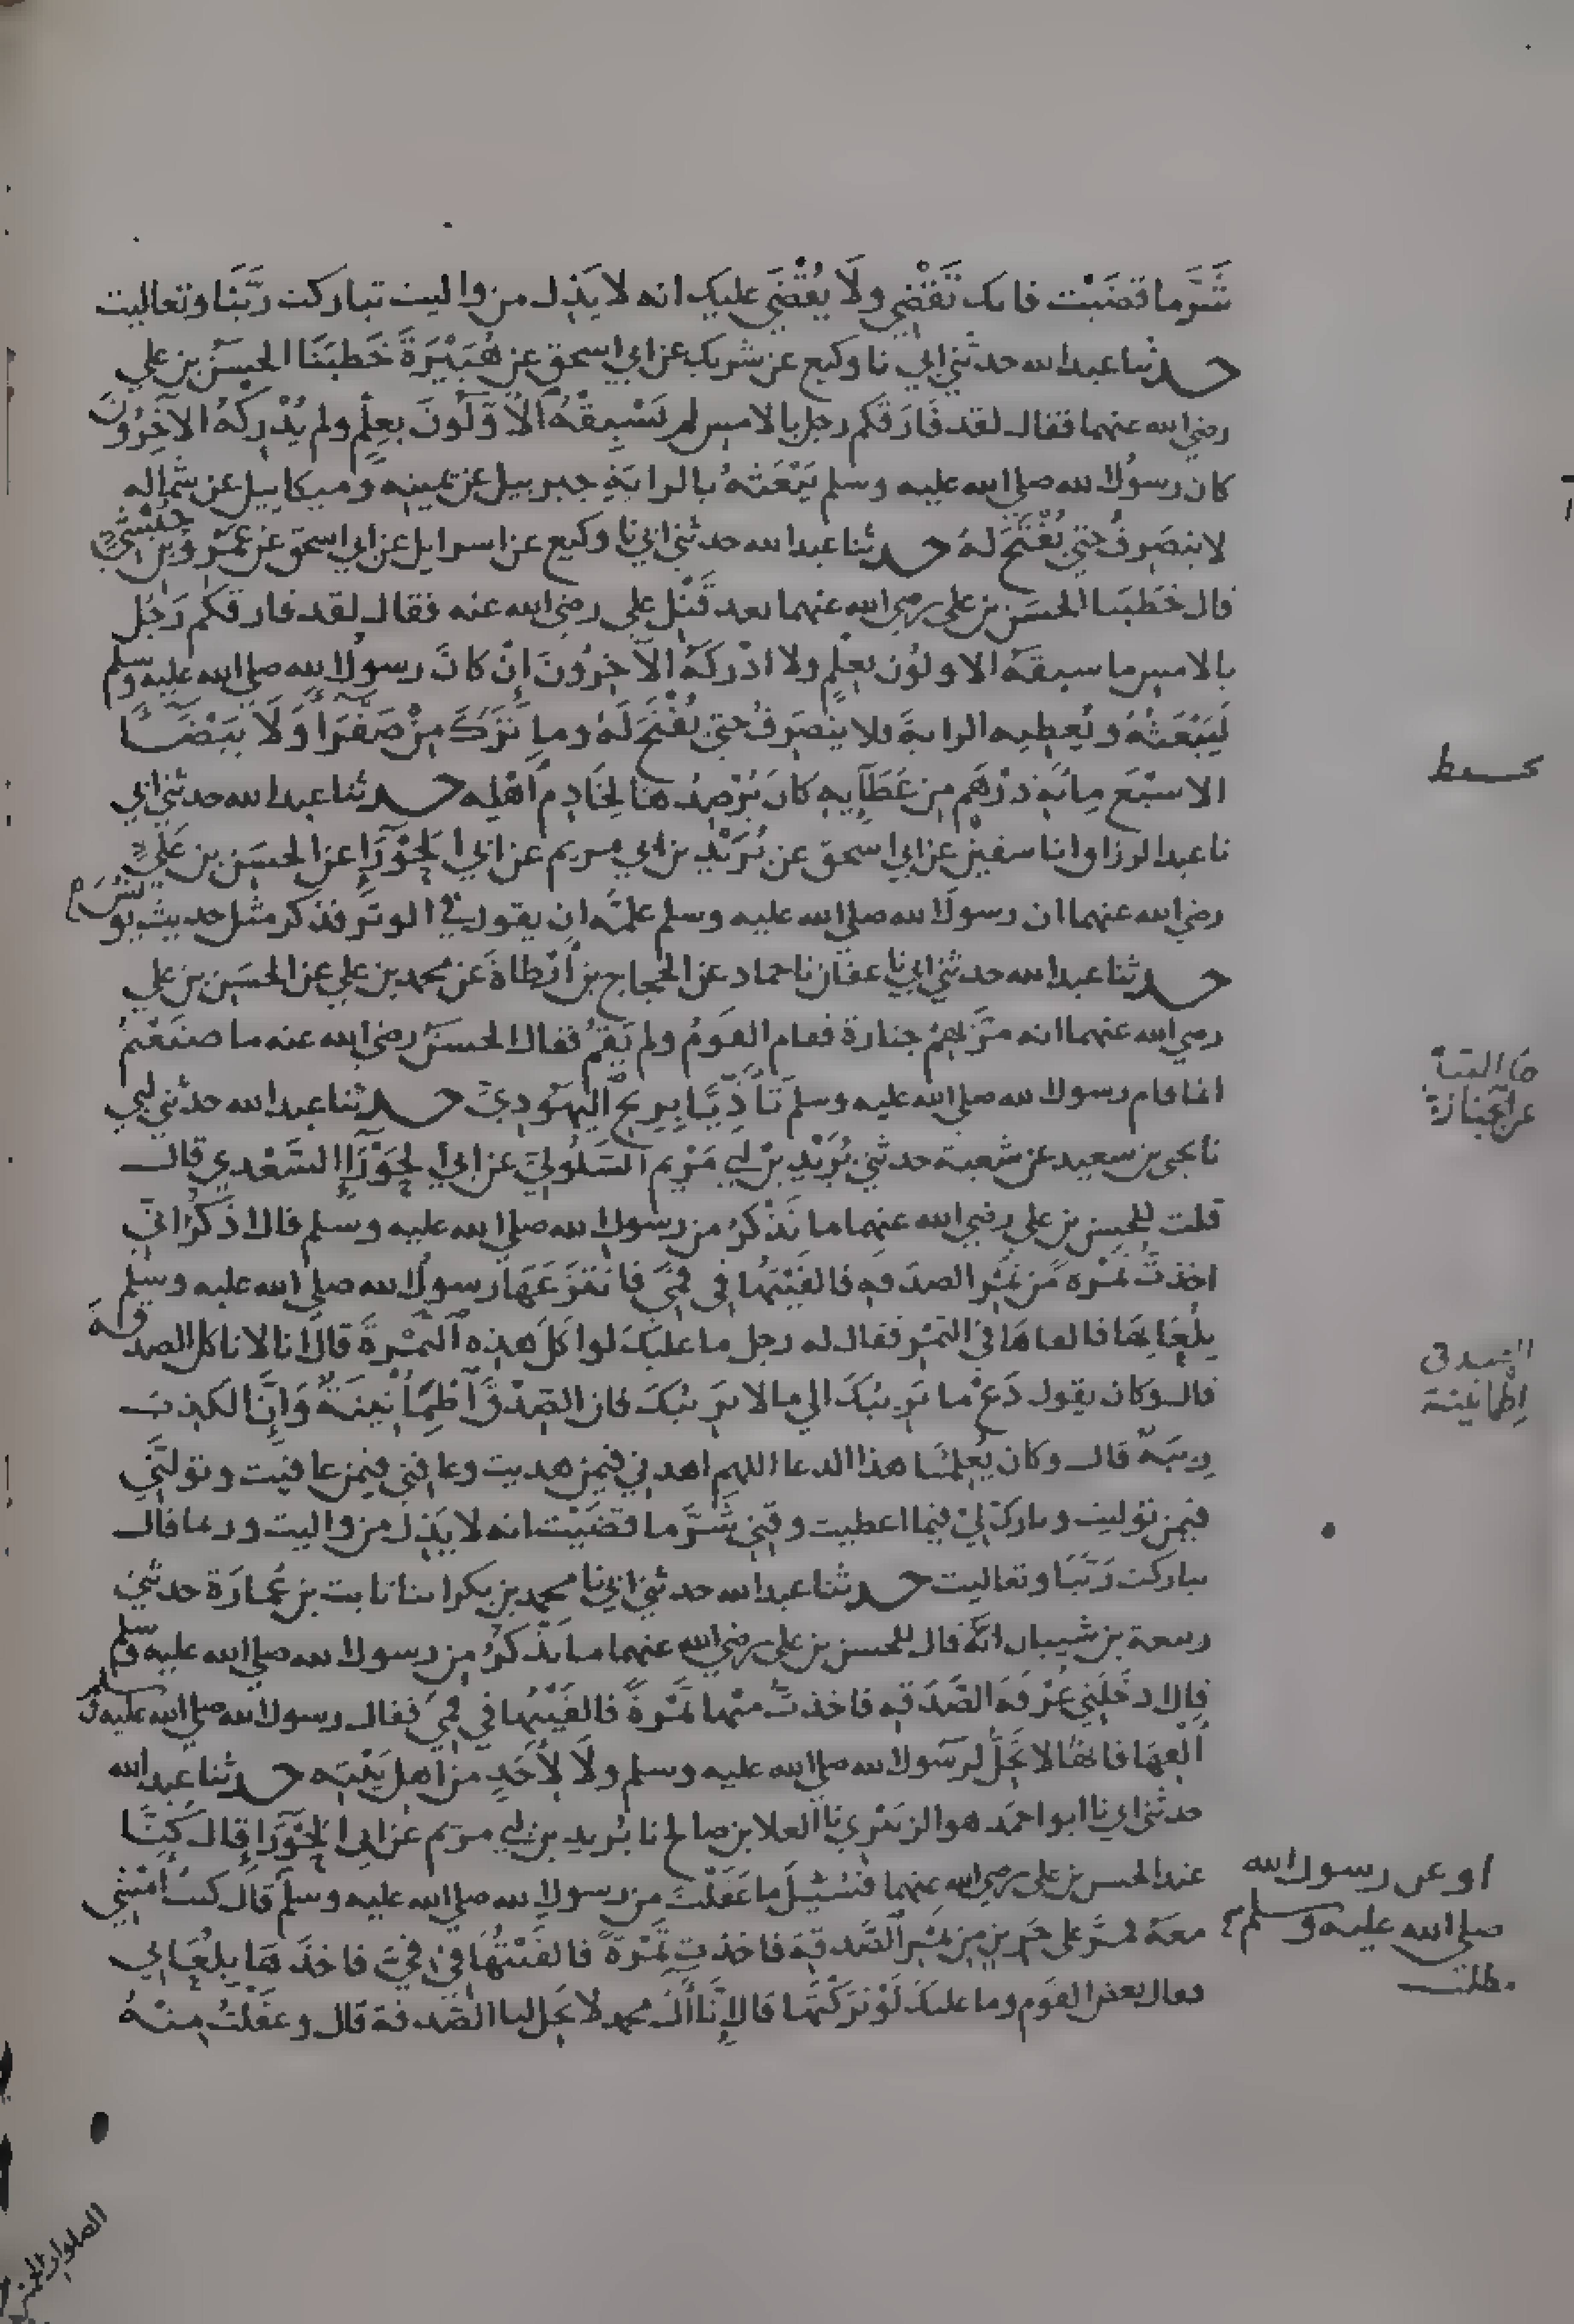 شَرَّ ما قضَيْت فانك تَقْضِي ولَا يُقْضَى عليك انه لا يَذِل من واليت تباركت ربَّنَا وتعاليت
حدثنا عبد الله حدثني ابي نا وكيع عن شريك عن ابي اسحق عن هُبَيْرَةَ خَطَبَنَا الحسَنُ بن علي
رضي الله عنهما فقال لقد فَارَقَكم رجل بالامس لم يَسْبِقْهُ الأَوَّلُونَ بعِلْمٍ ولم يُدْرِكْهُ الآخِرُونَ
كان رسول الله صلى الله عليه وسلم يَبْعَثهُ بالرايةِ جبرييل عن يمينه وميكاييل عن شماله
لا ينصَرِفُ حتى يُفْتَحَ لهُ حدثنا عبد الله حدثني ابي نا وكيع عن اسراييل عن ابي اسحق عن عَمْرو بنِ حُبْشيٍّ
قال خَطَبَنا الحسَن بن علي رضي الله عنهما بعد قَتْل علي رضي الله عنه فقال لقد فارقكم رَجُل
بالامس ما سبقَهُ الاولوُن بعِلمٍ ولا ادْركَهُ الآخِرُونَ إنْ كانَ رسول الله صلى الله عليه وسلم
لَيَبْعَثُهُ ويُعطِيه الرايةَ فلا ينصَرِفُ حتى يُفْتَحَ لَهُ وما تَرَكَ مِنْ صَفْرَاءَ وَلَا بَيْضَا
الا سَبْعَ مِائَةِ دِرْهَمٍ مِن عَطَآيِهِ كان يُرْصِدُهَا لِخَادِمٍ لاهْلِهِ حدثنا عبد الله حدثني ابي
نا عبد الرزاق انا سفين عن ابي اسحق عن بُرَيْدِ بن ابي مريم عن ابي الحَوْرَاءِ عن الحسَنِ بن عَلِيٍّ
رضي الله عنهما ان رسول الله صلى الله عليه وسلم علمَّهُ ان يقول في الوتر فذكر مثل حديث يونس
حدثنا عبد الله حدثني ابي نا عفان نا حماد عن الحجاج بن أَرْطاةَ عن محمد بن علي عن الحسَن بن علي
رضي الله عنهما انه مَرَّ بهمْ جنازة فقام القومُ ولم يَقمْ فقال الحسنُ رضي الله عنه ما صنَعْتم
انما قام رسول الله صلى الله عليه وسلم تَأَذِّيًا بِريحِ اليَهُودِيِّ حدثنا عبد الله حدثني ابي
نا يحيى بن سعيد عن شعبة حدثني بُرَيْد بن ابي مَرْيم السَّلُولِيّ عن ابي الحَوْرَاءِ السَّعْدي قال
قلت للحسن بن علي رضي الله عنهما ما تَذْكرُ من رسول الله صلى الله عليه وسلم قال اذكُرُ انّي
اخذتُ تمْرة مِن تَمْر الصدَقةِ فالقَيْتهُا في فميَّ فانتَزَعَهَا رسول الله صلى الله عليه وسلم
بِلُعَابِهَا فالقاهَا في التمْر فقال له رجل ما عليكَ لو اكَلَ هذِه التَّمْرةَ قال انا لا ناكل الصدقةَ
قال وكان يقول دَعْ ما يَرِيبُكَ الى ما لا يَرِيبُكَ فان الصِّدْقَ طُمَأْنِينَةٌ وَإنَّ الكِذبَ
رِيبَةٌ قال وكان يُعلمنَا هذا الدعا اللهم اهدني فيمن هديت وعافِني فيمن عافيْت وتولَّنِي
فيمن توليت وبارك لِي فيما اعطيت وقِني شَرَّ ما قضَيْت انه لا يَذِل من واليت وربما قال
تباركت رَبَّنَا وتعاليت حدثنا عبد الله حدثني ابي نا محمد بن بكر انبانا ثابت بن عُمارَة حدثني
ربيعة بن شيبان انَّهُ قال للحسن بن علي رضي الله عنهما ما تَذْكرُ مِن رسول الله صلى الله عليه وسلم
قال ادخَلَنِي غُرْفةَ الصَّدَقةِ فاخذتُ منْها تَمْرةً فالقَيْتُها في فمِيَ فقال رسول الله صلى الله عليه وسلم
أَلْقِهَا فانهَّا لا تَحِلُّ لرسول الله صلى الله عليه وسلم ولَا لأَحَدٍ من اهلِ بَيْتِه حدثنا عبد الله
حدثني ابي نا ابو احمَد هو الزبَيْرِي نا العلا بن صالح نا بُريد بن ابي مريم عن ابي الحَوْرَاءِ قال كُنَّا
عند الحسن بن علي رضي الله عنهما فسُئِلَ ما عَقَلْتَ من رسول الله صلى الله عليه وسلم قال كنتُ امْشي
معَهُ فمَرَّ على جَرِينٍ مِن تَمْر الصَّدقةِ فاخذتُ تَمْرَةً فالقَيْتُهَا في فِيَّ فاخذَهَا بِلُعَابي
فقال بعض القوم وما عليكَ لَوْ تَرَكْتَها قال إِنَّا آلَ محمد لا تَحِل لنا الصَّدقة قال وعَقلْتُ مِنْهُ
او عن رسول الله
صلى الله عليه وسلم